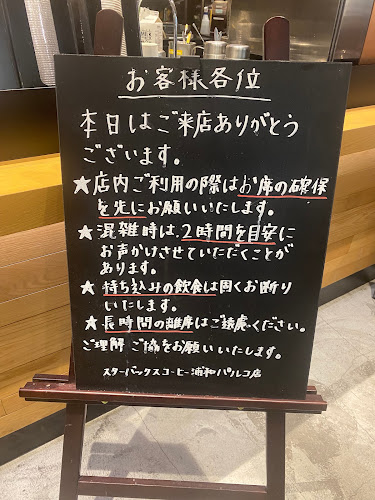 お客様各位
本日はご来店ありがとう
ございます。
★店内ご利用の際はお席の確保
を先にお願いいたします。
★混雑時は、2時間を目安に
お声かけさせていただくことが
あります。
★持ち込みの飲食は固くお断り
いたします。
★長時間の離席はご遠慮ください。
ご理解ご協をお願いいたします。
スターバックスコーヒー浦和パルコ店